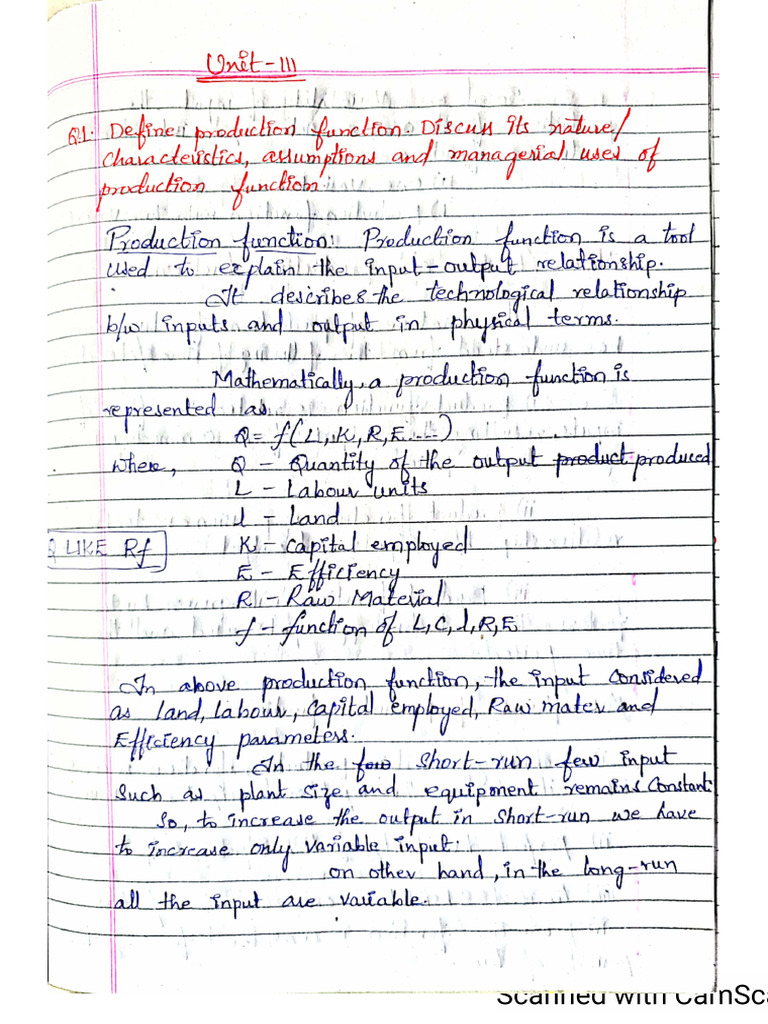 Unit-III
Q.1. Define production function. Discuss its nature/
characteristics, assumptions and managerial uses of
production function.
Production function: Production function is a tool
used to explain the input-output relationship.
It describes the technological relationship
b/w inputs and output in physical terms.
Mathematically, a production function is
represented as
Q = f(L, l, K, R, E....)
where, Q - Quantity of the output product produced
L - Labour units
l - Land
LIKE Rf
K - capital employed
E - Efficiency
R - Raw Material
f - function of L, C, l, R, E
In above production function, the input considered
as land, labour, capital employed, Raw mater and
Efficiency parameters.
In the few short-run few input
Such as plant size and equipment remains constant.
So, to increase the output in short-run we have
to increase only variable input.
on other hand, in the long-run
all the input are variable.
Scanned with CamSc